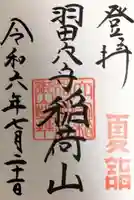 登拝
夏詣
羽田穴守稲荷山
令和六年七月二十一日